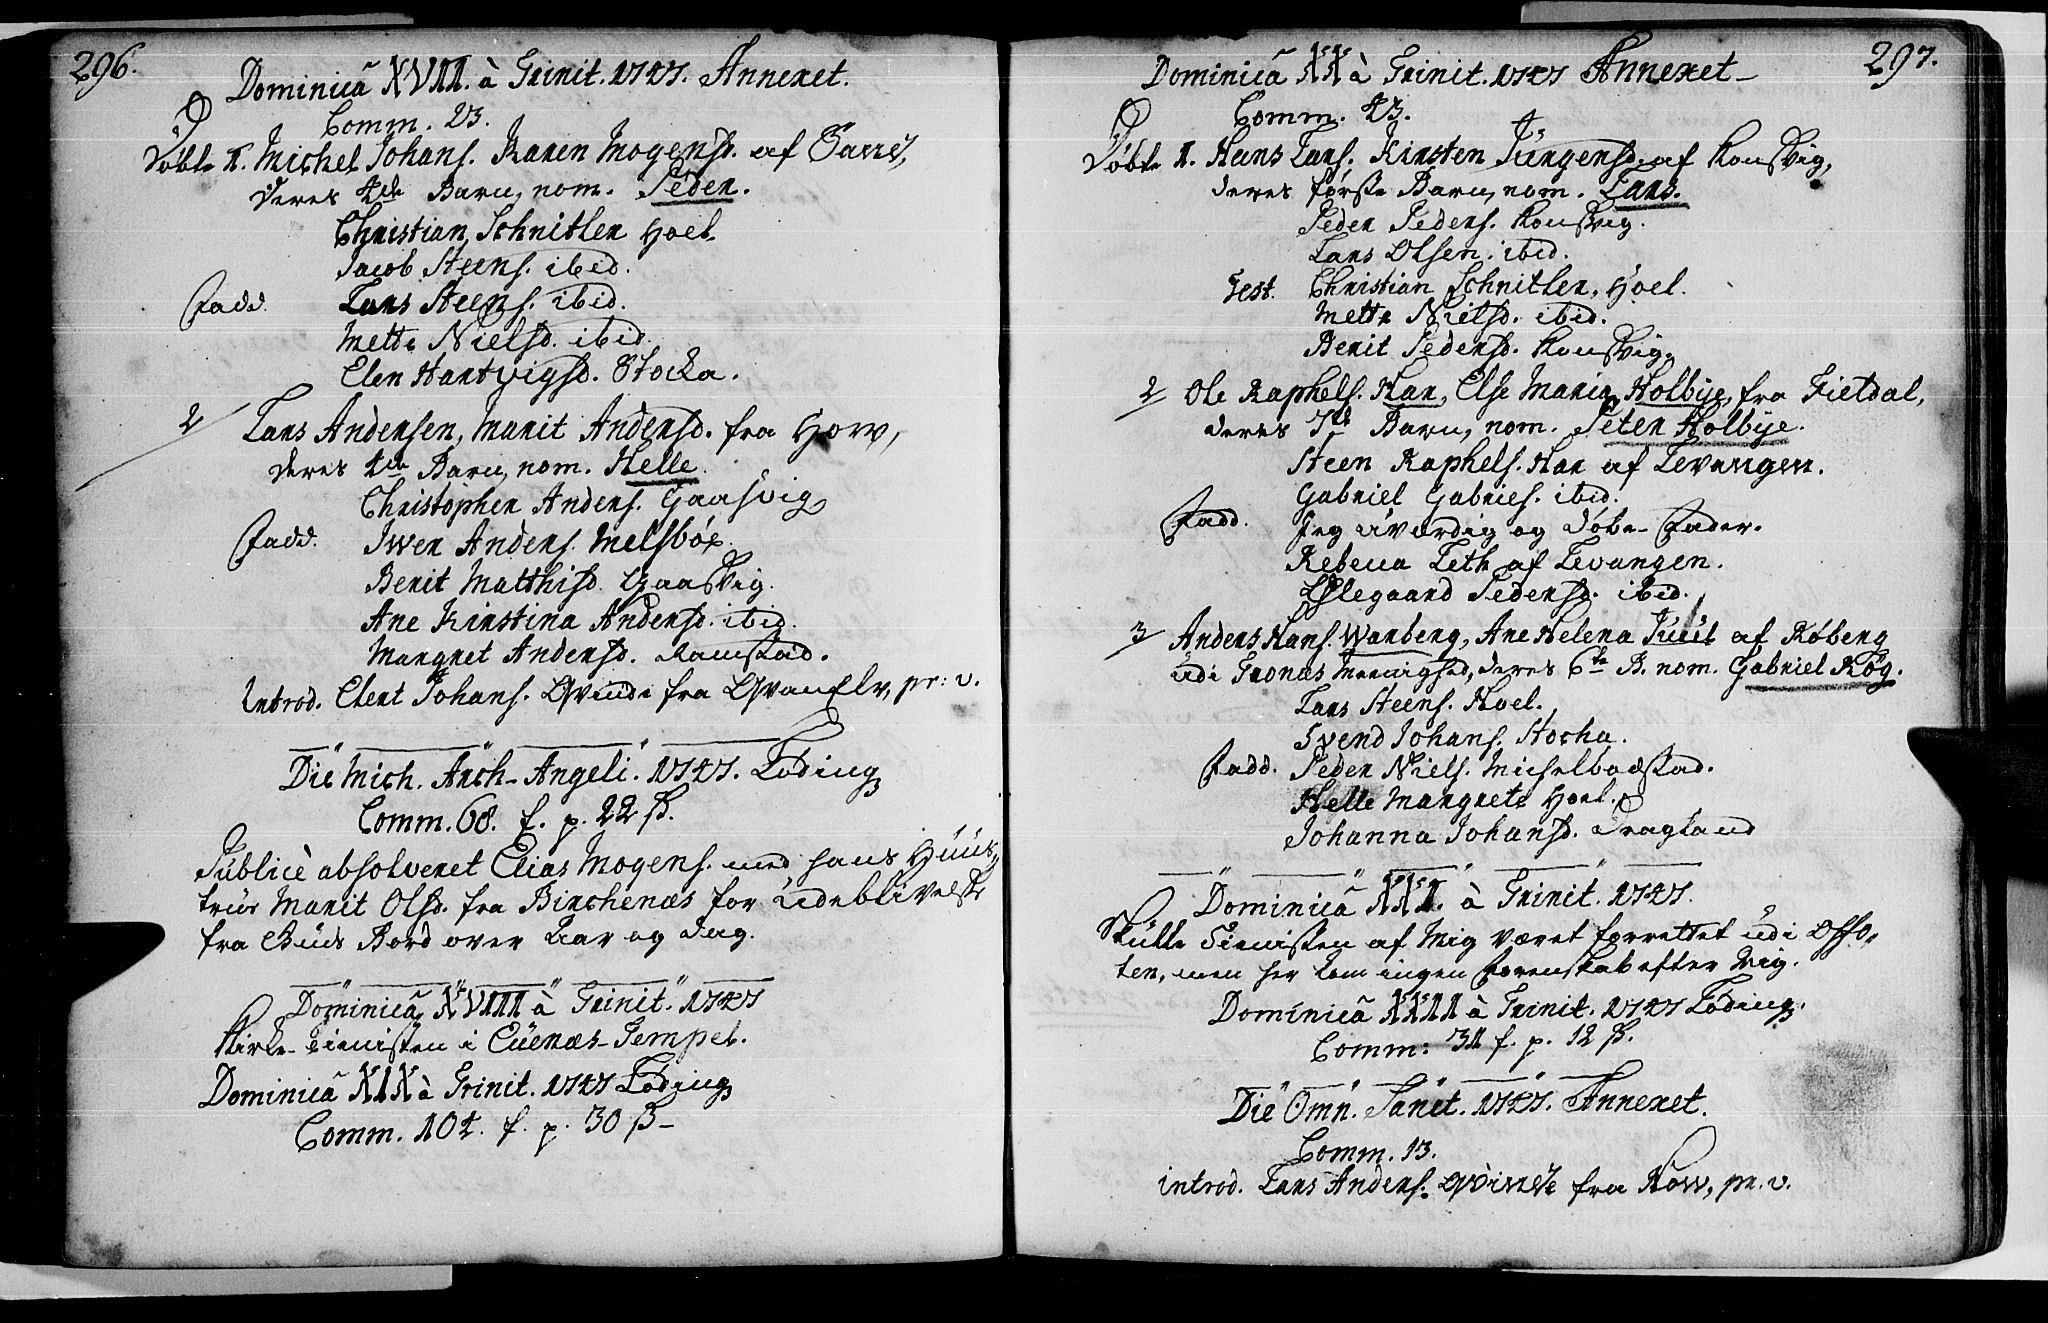 296.
Dominicâ XVII. à Trinit. 1747. Annexet.
Comm. 23.
Døbte 1. Michel Johans. Karen Mogensd. af Sand,
deres 4de Barn, nom. Peder.
Christian Schnitler Hoel
Jacob Steens. ibid.
Fadd. Lars Steens. ibid.
Mette Nielsd. ibid.
Elen Hartvigsd. Stocka.
2 Lars Andersen, Marit Andersd. fra Horv,
deres Barn, nom. Helle.
Christopher Anders. Gaasvig
Fadd. Iwer Anders. Melsbøe.
Berit Matthisd. Gaasvig.
Ane Kirstina Andersd. ibid.
Margret Andersd. Ramstad.
Introd. Elert Johans. Qvinde fra Qvanelv, pr: v.
Die Mich. Arch-Angeli. 1747. Løding
Comm. 68. f. p. 22 ß.
Publicè absolveret Elias Mogens. med hans Hüüs-
trüe Marit Olsd. fra Birchenæs for Udeblivelse
fra Güds Bord over Aar og Dag.
Dominicâ XVIII à Trinit. 1747
Kirke-Tienisten i Evenæs-Tempel.
Dominicâ XIX à Trinit. 1747 Løding
Comm. 104. f. p. 30 ß
297.
Dominicâ XX à Trinit. 1747 Annexet
Comm. 43.
Døbte 1. Hans Lars. Kirsten Jürgensd. af Kongsvig,
deres første Barn, nom. Lars.
Peder Peders. Kongsvig.
Lars Olsen. ibid.
Test. Christian Schnitler, Hoel.
Mette Nielsd. ibid.
Berit Pedersd. Kongsvig.
2 Ole Raphels. Har, Else Maria Holbye, fra Fieldal,
deres 7de Barn, nom. Peter Holbye.
Steen Raphels. Har af Levangen.
Gabriel Gabriels. ibid.
Fadd. Jeg uværdig og Døbe-Fader.
Rebecca Leth af Levangen.
Øllegaard Pedersd. ibid.
3 Anders Hans. Warberg, Ane Helena Juul af Røberg
udi Tronæs Menighed, deres 6te B. nom. Gabriel Røg.
Lars Steens. Hoel.
Svend Johans. Stocka.
Fadd. Peder Niels. Michelbodstad.
Helle Margrete Hoel.
Johanna Johansd. Dragland
Dominicâ XXI. à Trinit. 1747.
Skulle Tienisten af Mig været forrettet udi Offo-
ten, men her kom ingen Forenskab efter Mig.
Dominicâ XXII à Trinit. 1747 Løding.
Comm: 31 f. p. 12 ß.
Die Omn. Sanct. 1747. Annexet.
Comm. 13.
introd. Lars Anders. Qvinde fra Horv, pr. v.